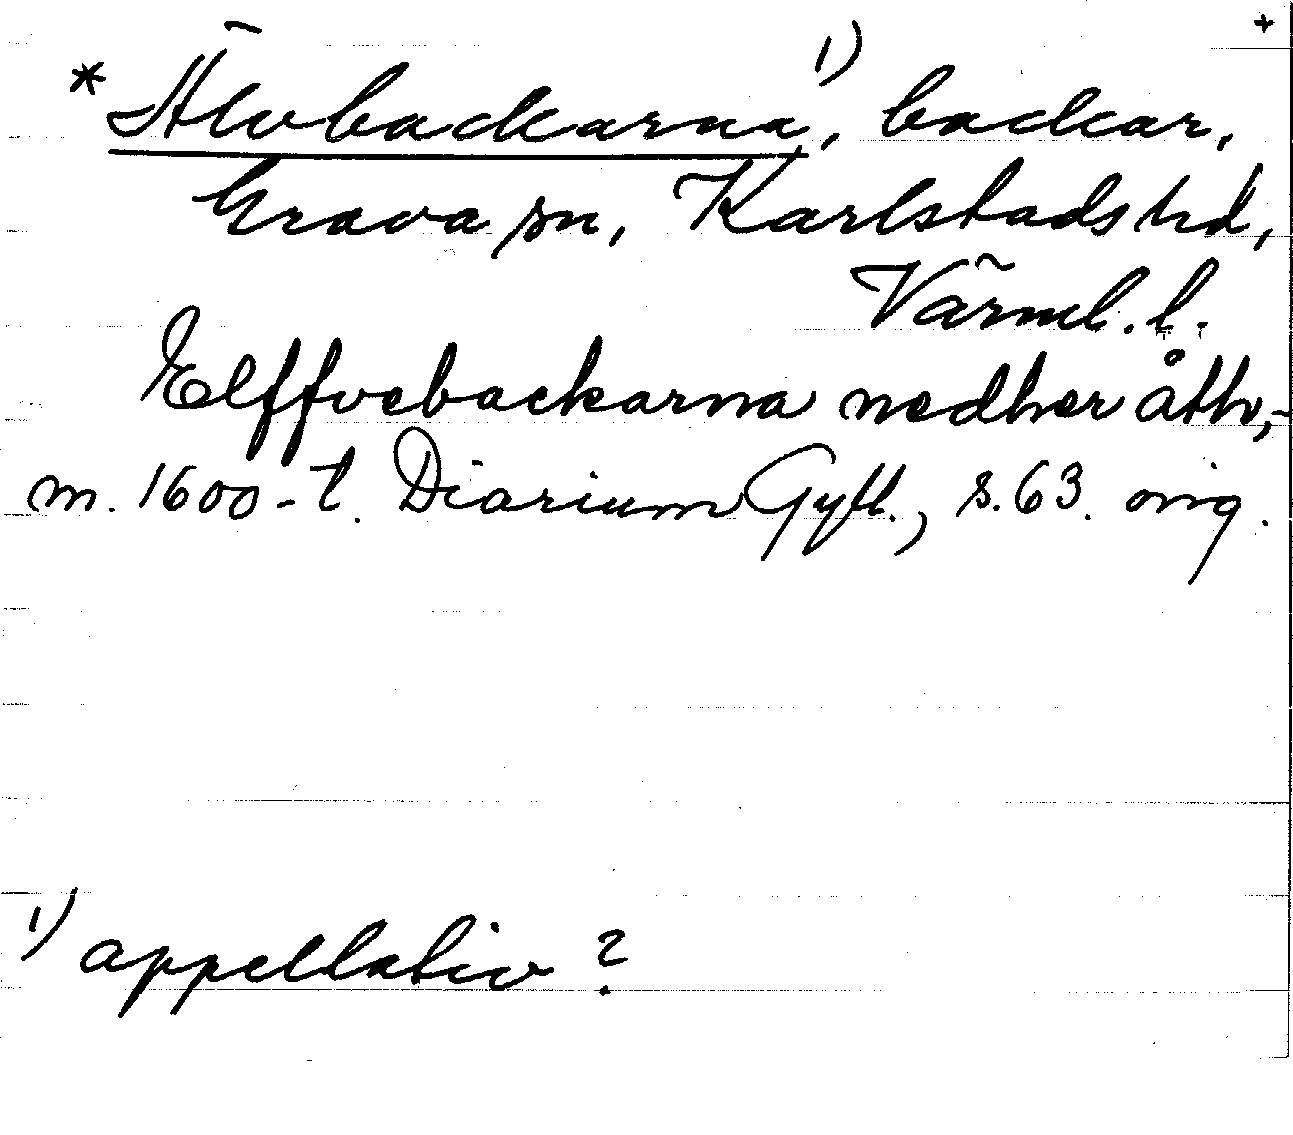 +
* Älvbackarna ¹⁾, backar,
Grava sn, Karlstads hd,
Värml. l.
Elffvebackarna nedher åth,-
m. 1600-t. Diarium Gyll., s. 63. orig.
¹⁾ appellativ?